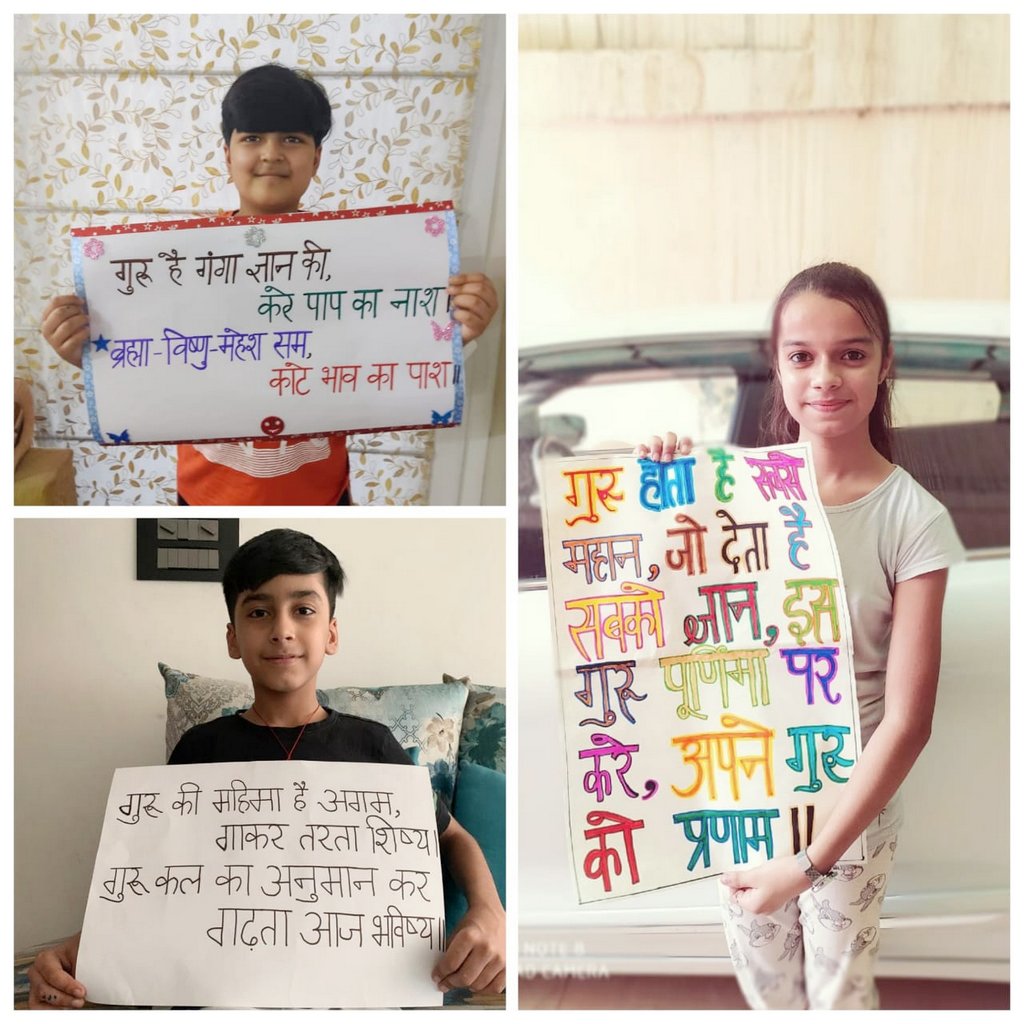 गुरू है गंगा ज्ञान की,
करे पाप का नाश।
ब्रह्मा-विष्णु-महेश सम,
काटे भाव का पाश॥
गुरू की महिमा है अगम,
गाकर तरता शिष्य।
गुरू कल का अनुमान कर
गढ़ता आज भविष्य॥
गुरू होता है सबसे
महान, जो देता है
सबको ज्ञान, इस
गुरू पूर्णिमा पर
करे, अपने गुरू
को प्रणाम ॥
NOTE 8
CAMERA